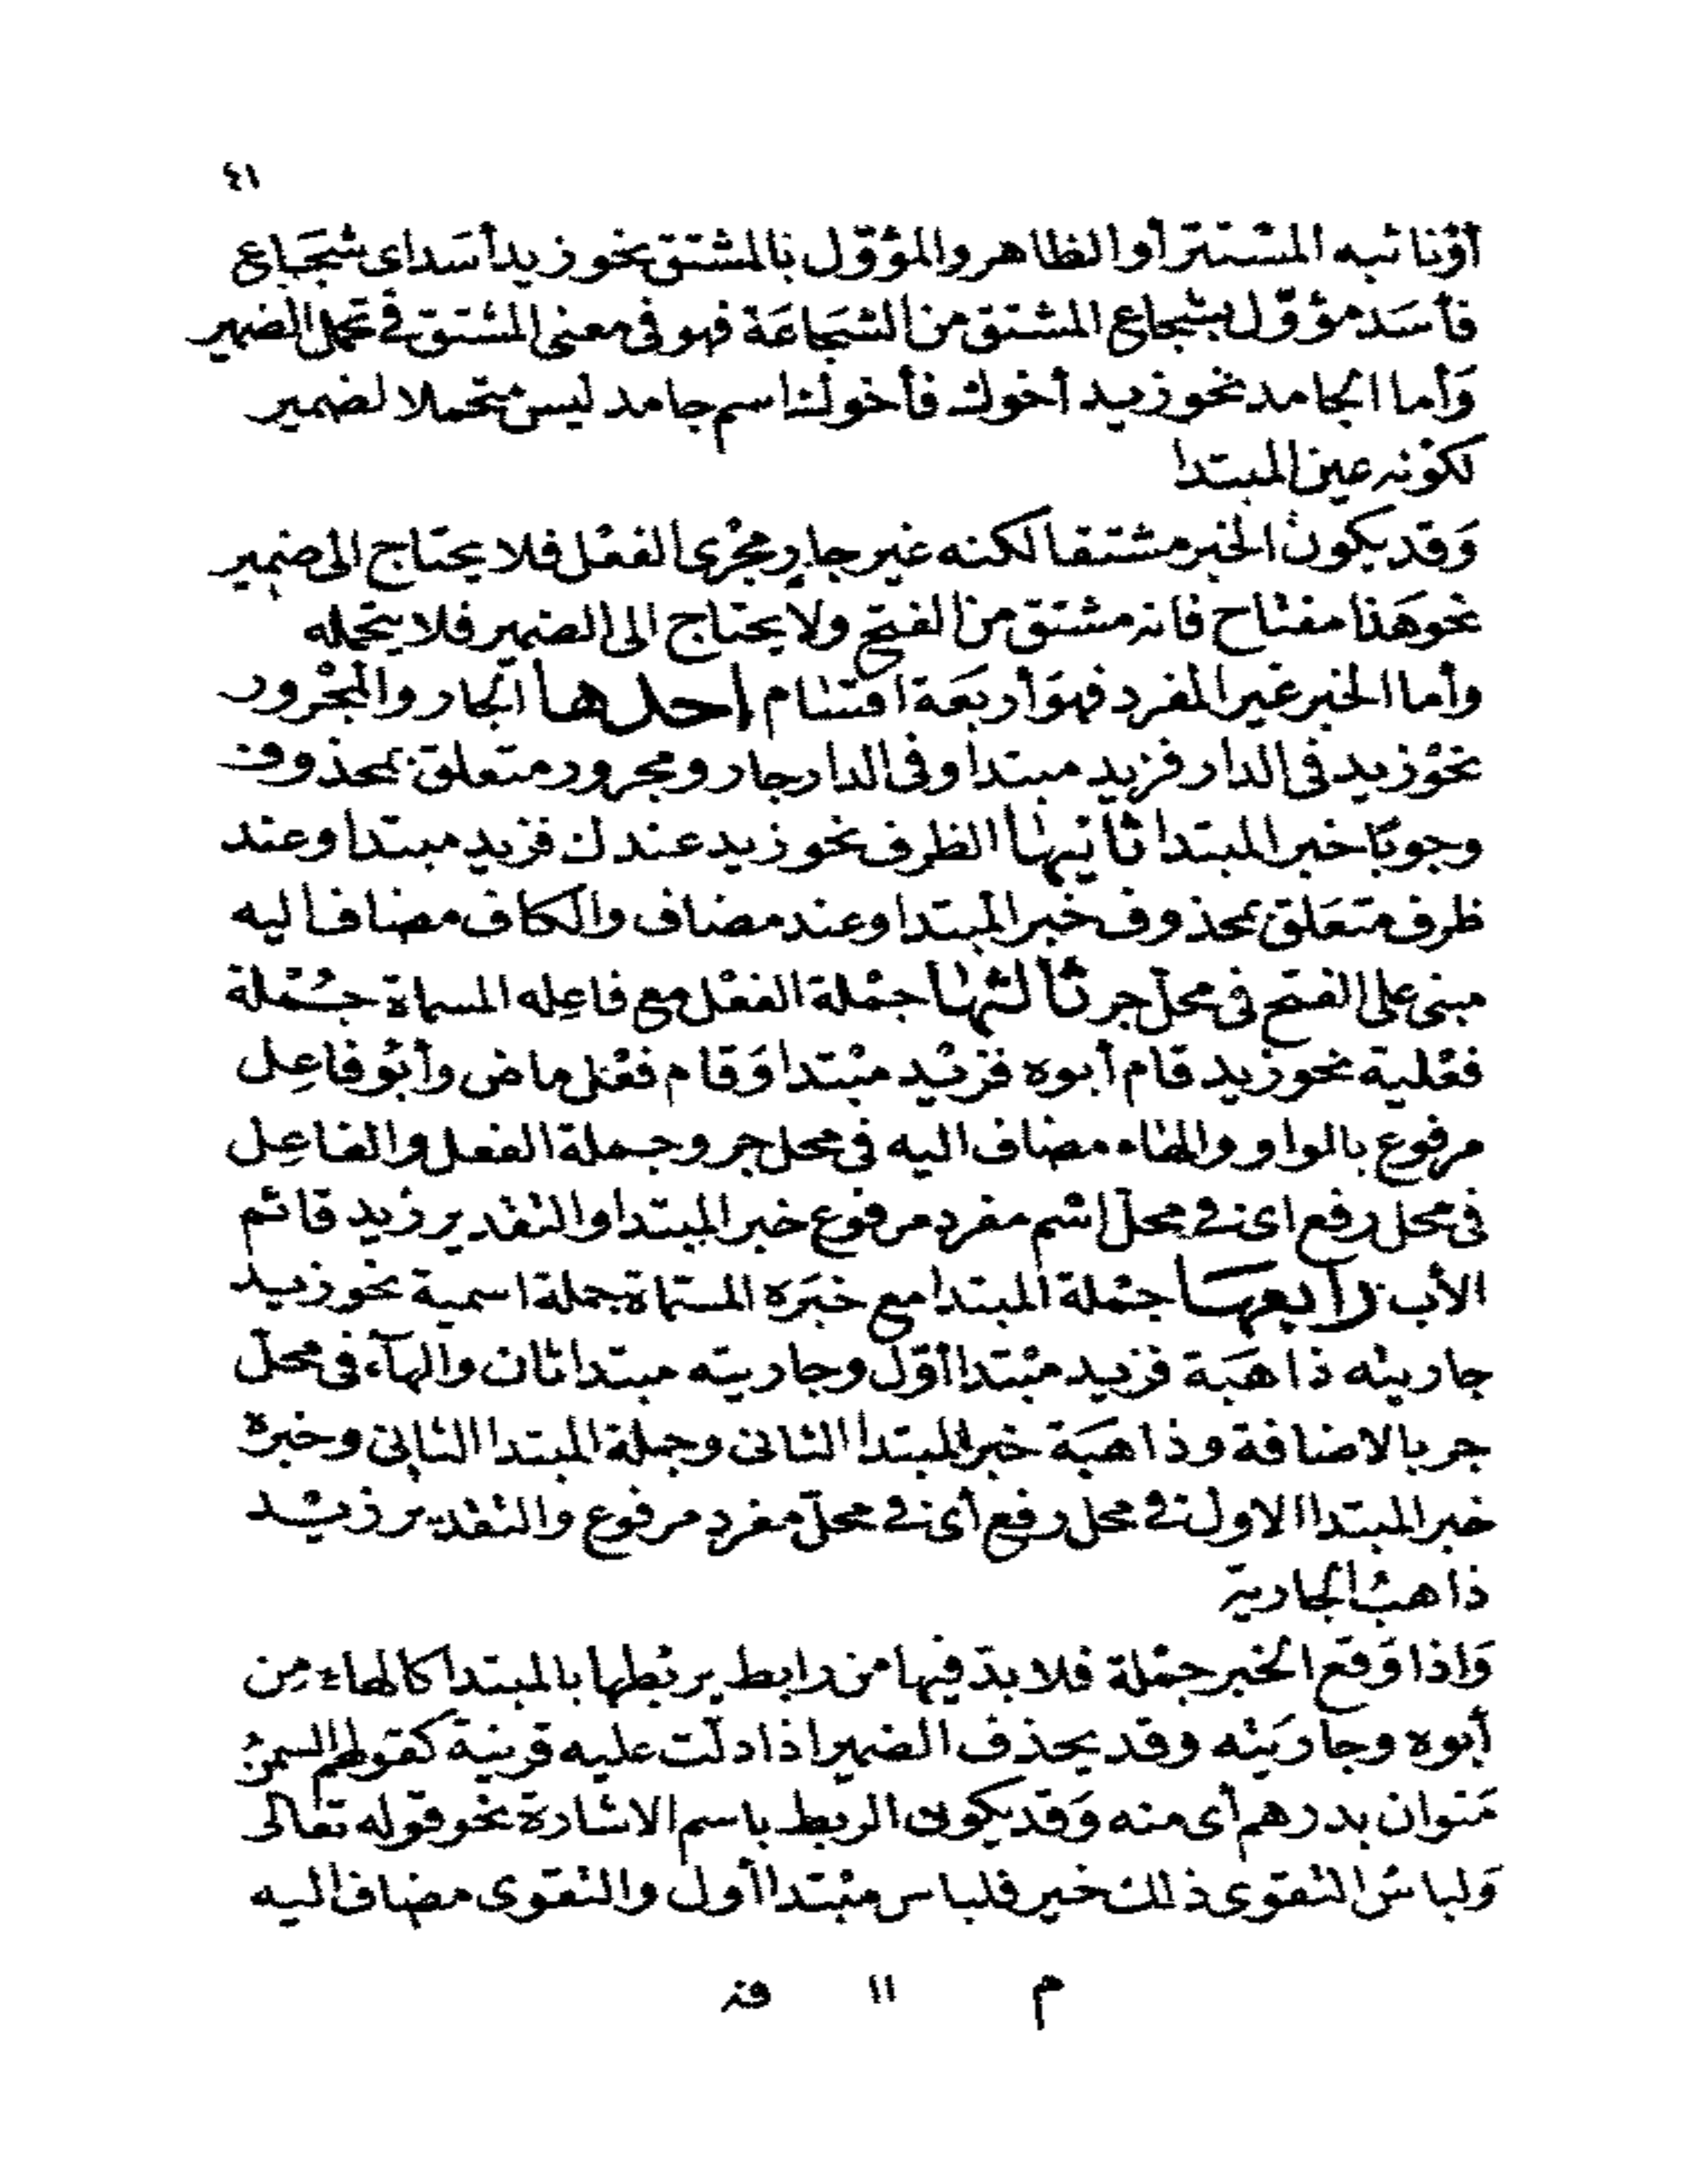 ٤١
أو نائبه المستتر أو الظاهر والمؤوّل بالمشتق نحو زيد أسَد اى شجَاع
فأسَد مؤوّل بشجاع المشتق من الشجَاعَة فهو فى معنى المشتق فى تحمل الضمير
وَأما الجامد نحو زيد أخوك فأخوك اسم جامد ليس متحملا لضمير
لكوْنه عين المبتدا
وَقد يكون الخبر مشتقا لكنه غير جارٍ مجْرى الفعْل فلا يحتاج الى ضمير
نحو هَذا مفتاح فانه مشتق من الفتح ولا يحتاج الى الضمير فلا يتحمله
وأما الخبر غير المفرد فهوَ أربعَة اقسام احدها الجار والمجْرور
نحوْ زيد فى الدار فزيد مبتدا وفى الدار جار ومجرور متعلق بمحذوف
وجوبًا خبر المبتدا ثانيها الظرف نحو زيد عندك فزيد مبتدا وعند
ظرف متعَلق بمحذوف خبر المبتدا وعند مضاف والكاف مضاف اليه
مبنى على الفتح فى محلّ جر ثالثها جمْلة الفعْل مع فاعِله المسماة جمْلة
فعْلية نحو زيد قام أبوه فزيْد مبْتدا وَقام فعْل ماض وأبوُ فاعِل
مرفوع بالواو والهاء مضاف اليه فى محل جر وجملة الفعل والفاعِل
فى محل رفع اى فى محلّ اسْم مفرد مرفوع خبر المبتدا والتقدير زيد قائم
الأب رابعهَا جمْلة المبتدا مع خبَره المسمّاة جملة اسمية نحو زيد
جاريته ذاهَبة فزيد مبْتدا أوّل وجاريته مبتدا ثان والهآء فى محلّ
جر بالاضافة وذاهبَة خبر المبتدا الثانى وجملة المبتدا الثانى وخبره
خبر المبتدا الاول فى محل رفع أى فى محلّ مفرد مرفوع والتقدير زيْد
ذاهبُ الجارية
وَاذا وَقع الخبر جمْلة فلا بدّ فيها من رابط يربُطها بالمبتدا كالهاء مِن
أبوه وجارَيته وقد يحذف الضمير اذا دلّت عليه قرينة كقولهم السمنُ
مَنوان بدرهم أى منه وَقد يكون الربط باسم الاشارة نحو قوله تعَالى
وَلباسُ التقوى ذلك خير فلباس مبْتدا أول والتقوى مضاف اليه
م ١١ فن